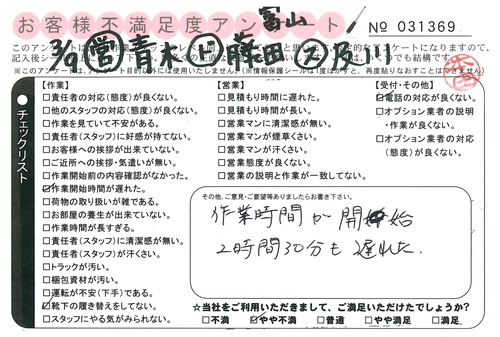 お客様不満足度アンケート
富山
№ 031369
3/6 営 青木 上 藤田 ② 及川
このアンケートは
記入後シー
結構です。
チェックリスト
【作業】
□責任者の対応(態度)が良くない。
□他のスタッフの対応(態度)が良くない。
□作業を見ていて不安がある。
□責任者(スタッフ)に好感が持てない。
□お客様への挨拶が出来ていない。
□ご近所への挨拶・気遣いが無い。
□作業開始前の内容確認がなかった。
☑作業開始時間が遅れた。
□荷物の取り扱いが雑である。
□お部屋の養生が出来ていない。
□作業時間が長すぎる。
□責任者(スタッフ)に清潔感が無い。
□責任者(スタッフ)が汗くさい。
□トラックが汚い。
□梱包資材が汚い。
□運転が不安(下手)である。
☑靴下の履き替えをしてない。
□スタッフにやる気がみられない。
【営業】
□見積もり時間に遅れた。
□見積もり時間が長い。
□営業マンに清潔感が無い。
□営業マンが煙草くさい。
□営業マンが汗くさい。
□営業態度が良くない。
□営業の説明と作業が一致してない。
【受付・その他】
☑電話の対応が良くない。
□オプション業者の説明
・作業が良くない。
□オプション業者の対応
(態度)が良くない。
その他、ご意見・ご要望等ありましたらお書き下さい。
作業時間が開始
2時間30分も遅れた。
☆当社をご利用いただきまして、ご満足いただけたでしょうか?
□不満 ☑やや不満 □普通 □やや満足 □満足